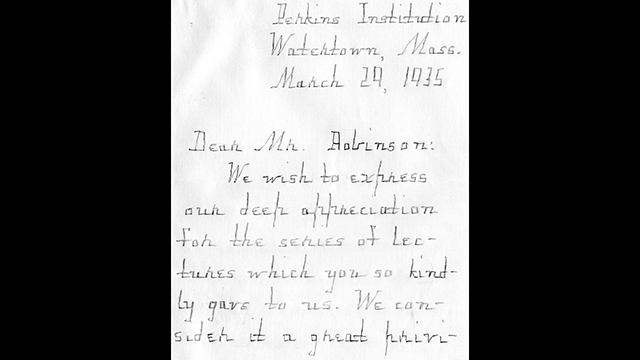 Perkins Institution
Watertown, Mass.
March 29, 1935
Dear Mr. Robinson:
We wish to express
our deep appreciation
for the series of lec-
tures which you so kind-
ly gave to us. We con-
sider it a great privi-